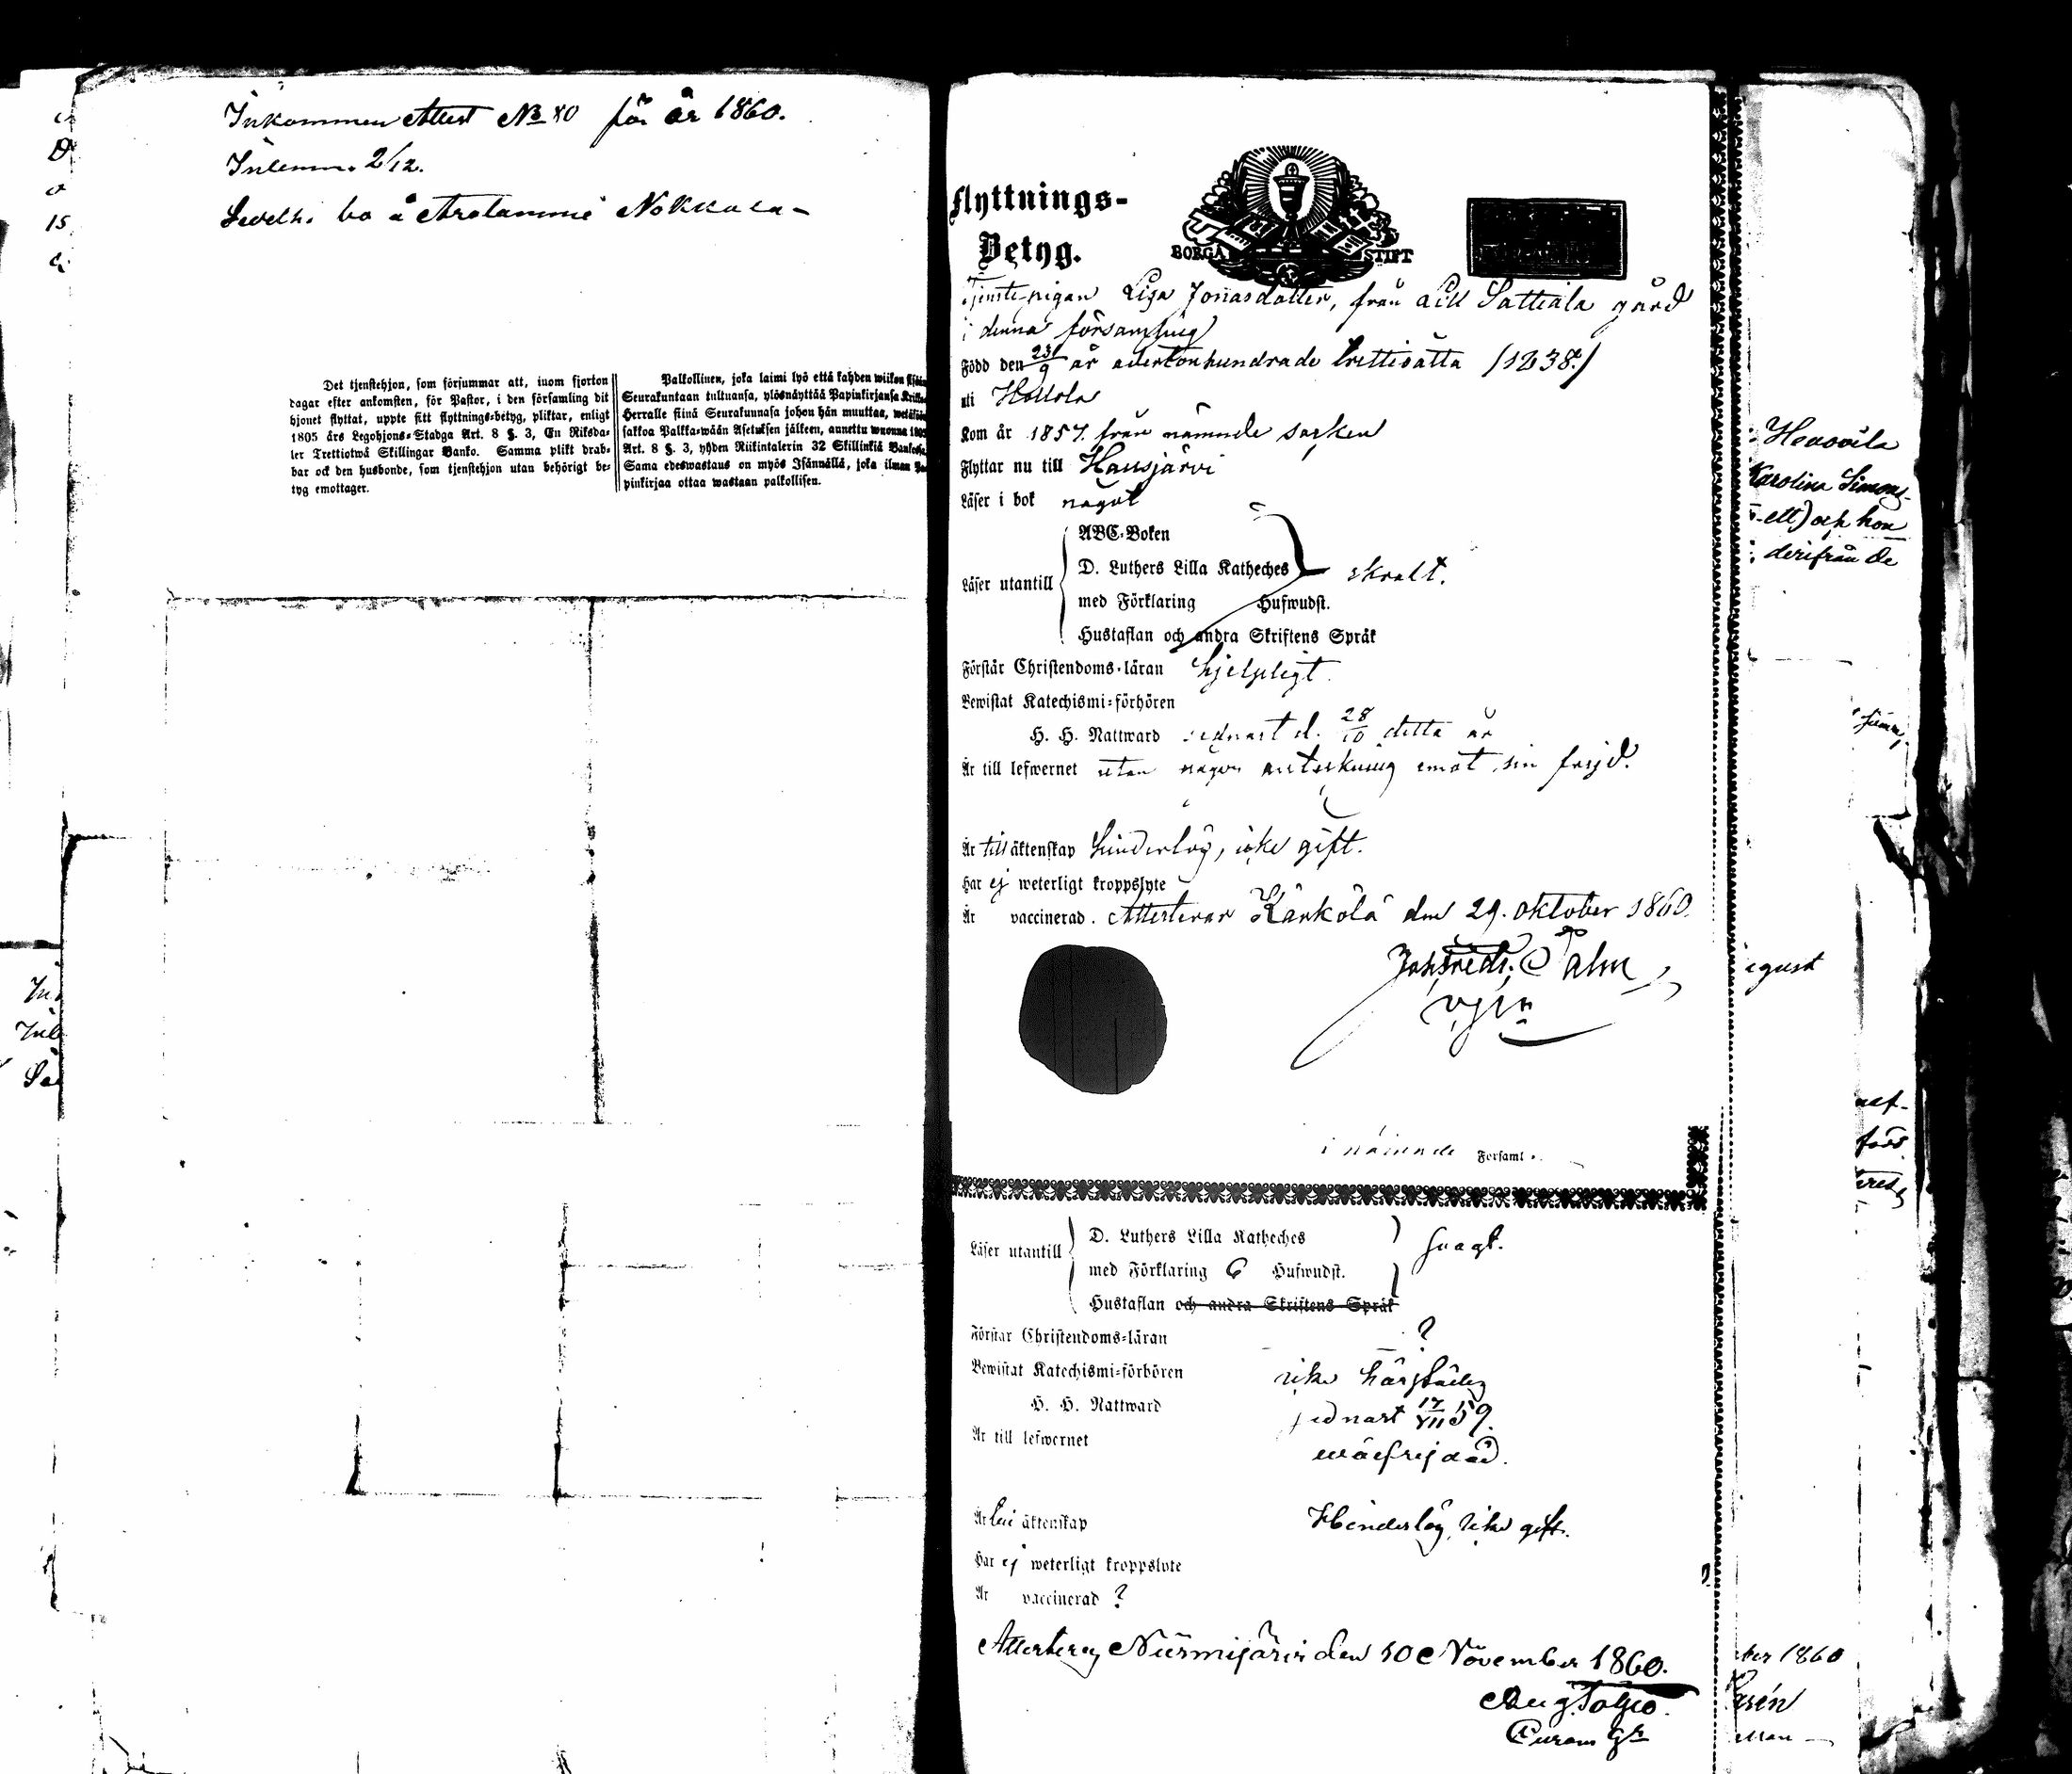 Inkommen Attest No 80 för år 1860.
Inlemn. 2/12.
bo å Nokkala
Det tjenstehjon, som försummar att, inom fjorton
dagar efter ankomsten, för Pastor, i den församling dit
hjonet flyttat, uppte sitt flyttnings-betyg, pliktar, enligt
1805 års Legohjons-Stadga Art. 8 §. 3, En Riksda-
ler Trettiotwå Skillingar Banko. Samma plikt drab-
bar ock den husbonde, som tjenstehjon utan behörigt be-
tyg emottager.
Palkollinen, joka laimi lyö että kahden wiikon
Seurakuntaan tultuansa, ylösnäyttää Papinkirjansa
Herralle siinä Seurakunnasa johon hän muuttaa,
sakkoa Palkka-wään Asetuksen jälkeen, annettu wuonna
Art. 8 §. 3, yhden Riikintalerin 32 Skillinkiä
Sama edeswastaus on myös Isännällä, joka ilman
pinkirjaa ottaa wastaan palkollisen.
Flyttnings-
Betyg.
BORGÅ STIFT
Tjenstepigan Lisa Jonasdotter, från Lill Sattiala gård
i denna församling
Född den 23/9 år adertonhundrade trettioåtta (1838.)
uti Hollola
Kom år 1857. från nämnde socken
Flyttar nu till Hausjärvi
Läser i bok något
ABC-Boken
D. Luthers Lilla Katheches
Läser utantill skralt.
med Förklaring Hufwudst.
Hustaflan och andra Skriftens Språk
Förstår Christendoms-läran hjelpligt.
Bewistat Katechismi-förhören
H. H. Nattward sednast d. 28/10 detta år
Är till lefwernet utan någon anteckning emot sin frejd.
Är till äktenskap hinderlös, icke gift.
Har ej weterligt kroppslyte
Är vaccinerad. Attesterar Kärkölä den 29. Oktober 1860.
i nämnde Forsaml
D. Luthers Lilla Katheches
Läser utantill svagt.
med Förklaring 6 Hufwudst.
Hustaflan och andra Skriftens Språk
Förstår Christendoms-läran ?
Bewistat Katechismi-förhören icke härstädes
H. H. Nattward sednast 17/VII 59.
Är till lefwernet wälfrejdad.
Är till äktenskap Hinderlös, icke gift.
Har ej weterligt kroppslyte
Är vaccinerad ?
Attesteras Nurmijärvi den 10 November 1860.
Karolina Simons-
ett) och hon
derifrån de
ber 1860